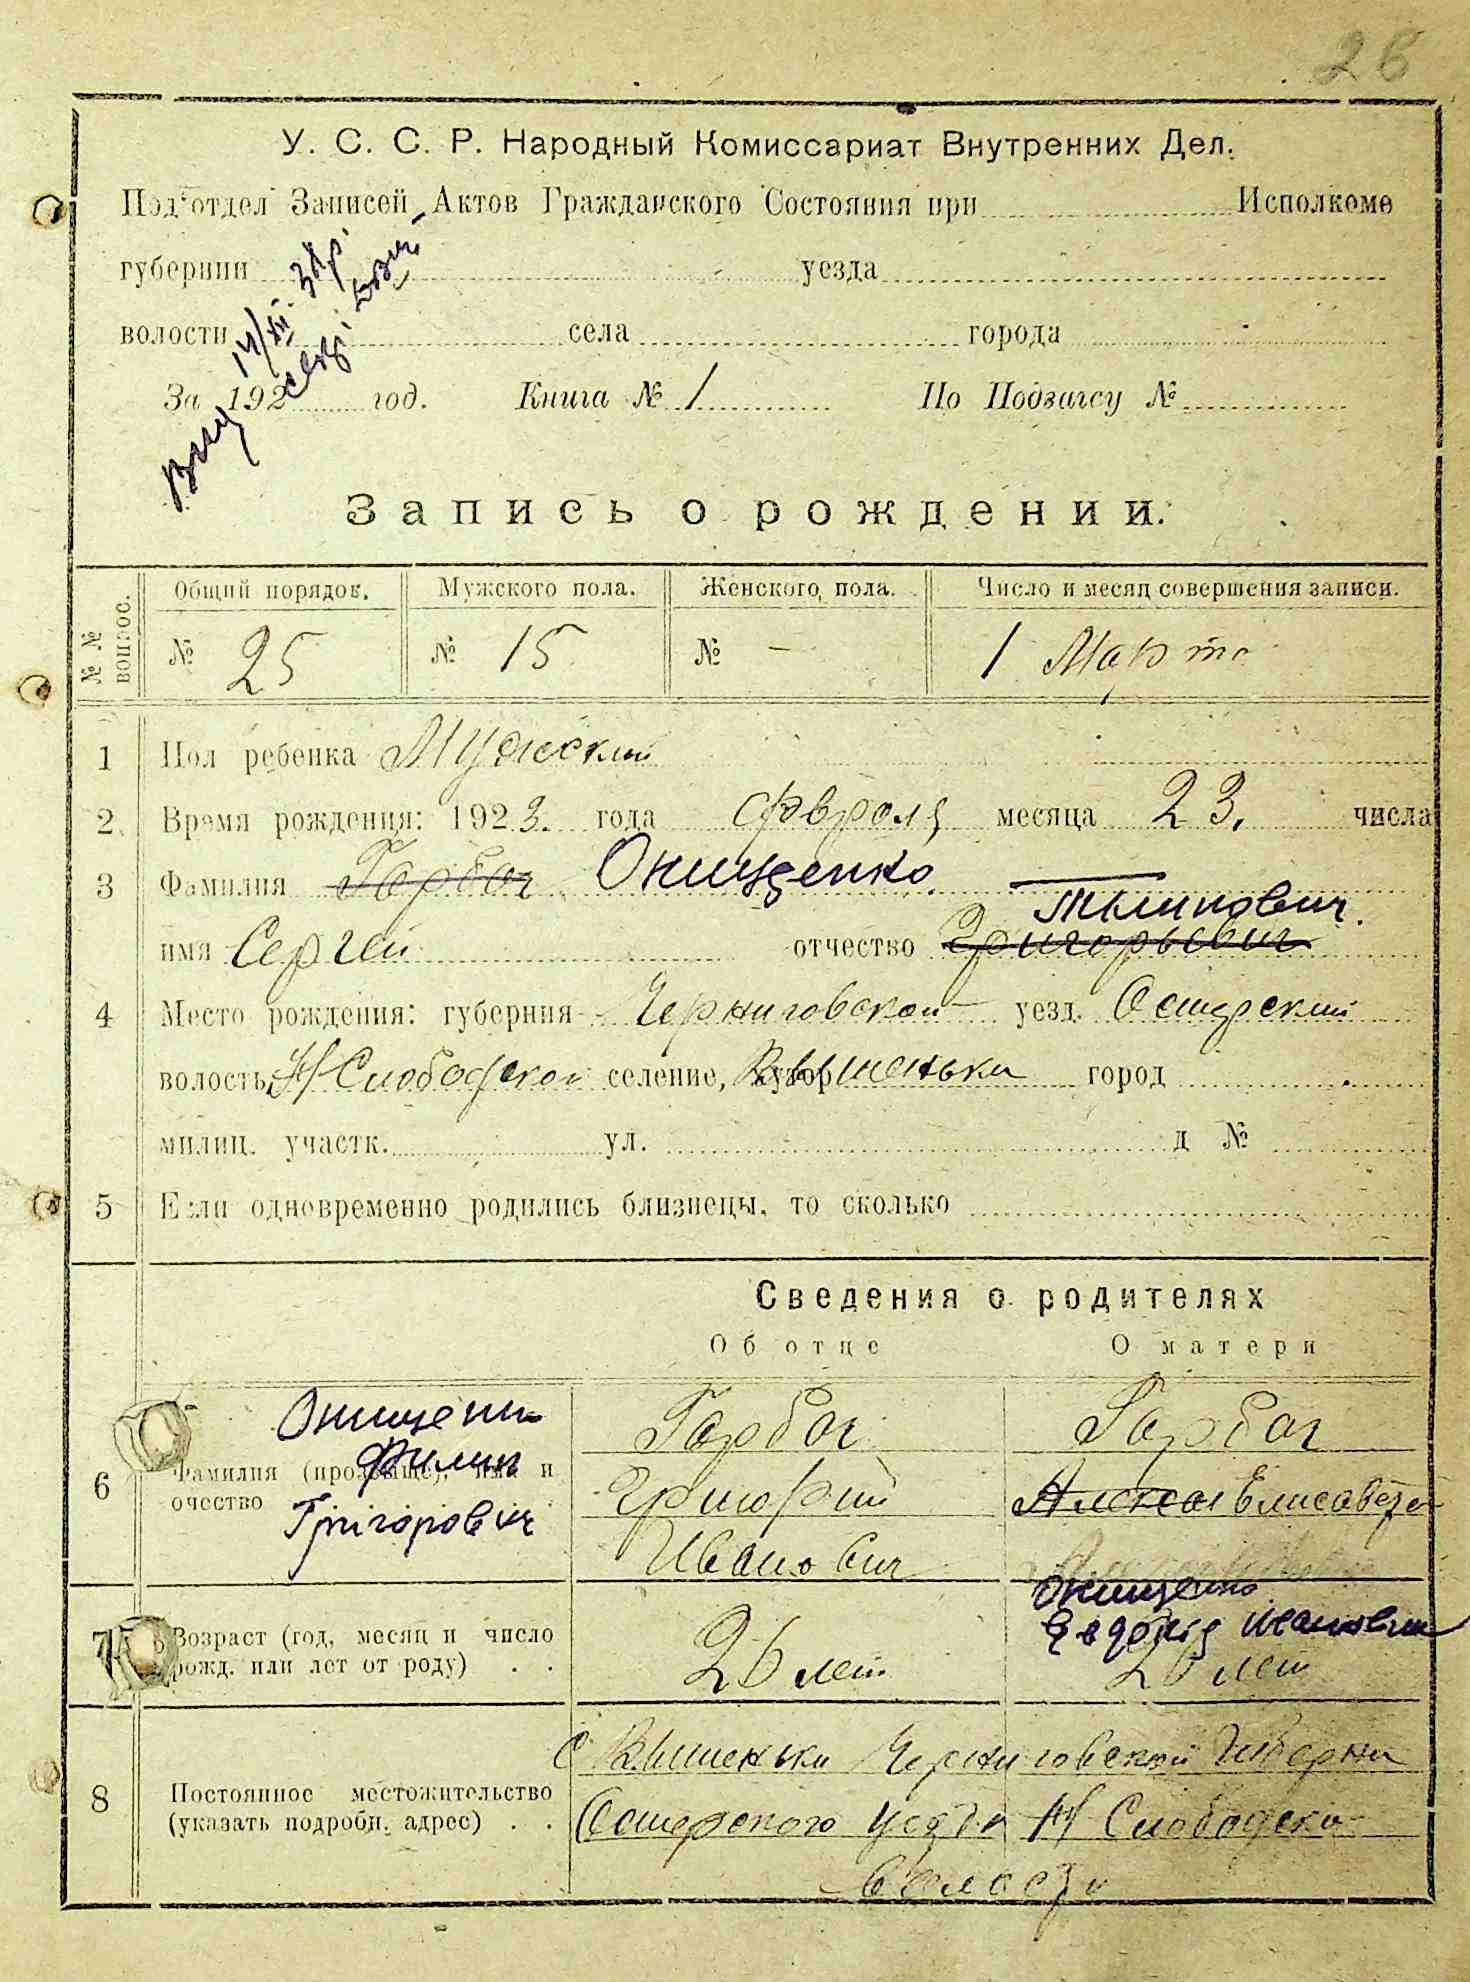 26
У. С. С. Р. Народный Комиссариат Внутренних Дел.
Под'отдел Записей Актов Гражданского Состояния при Исполкоме
губернии уезда
волости села города
За 192 год. Книга № 1 По Подзагсу №
Запись о рождении.
№ № вопрос. Общий порядок. Мужского пола. Женского пола. Число и месяц совершения записи.
№ 25 № 15 № - 1 Марта
1 Пол ребенка Мужской
2 Время рождения: 1923. года февраля месяца 23. числа
3 Фамилия Горбач Онищенко
Филипович
имя Сергей отчество Григорьевич
4 Место рождения: губерния Черниговской уезд. Остерский
волость Н/Слободской селение, хутор Вишеньки город
милиц. участк. ул. д №
5 Если одновременно родились близнецы, то сколько
Сведения о родителях
Об отце О матери
Онищенко Горбач Горбач
Филип
6 Фамилия (прозвище), имя и очество Григорий Елисавета
Григорович Иванович
Онищенко
7 Возраст (год, месяц и число рожд. или лет от роду) . . 26 лет лет
с Вишеньки Черниговской Губерни
8 Постоянное местожительство (указать подробн. адрес) . . Остерского уезда Н/Слободско
волости